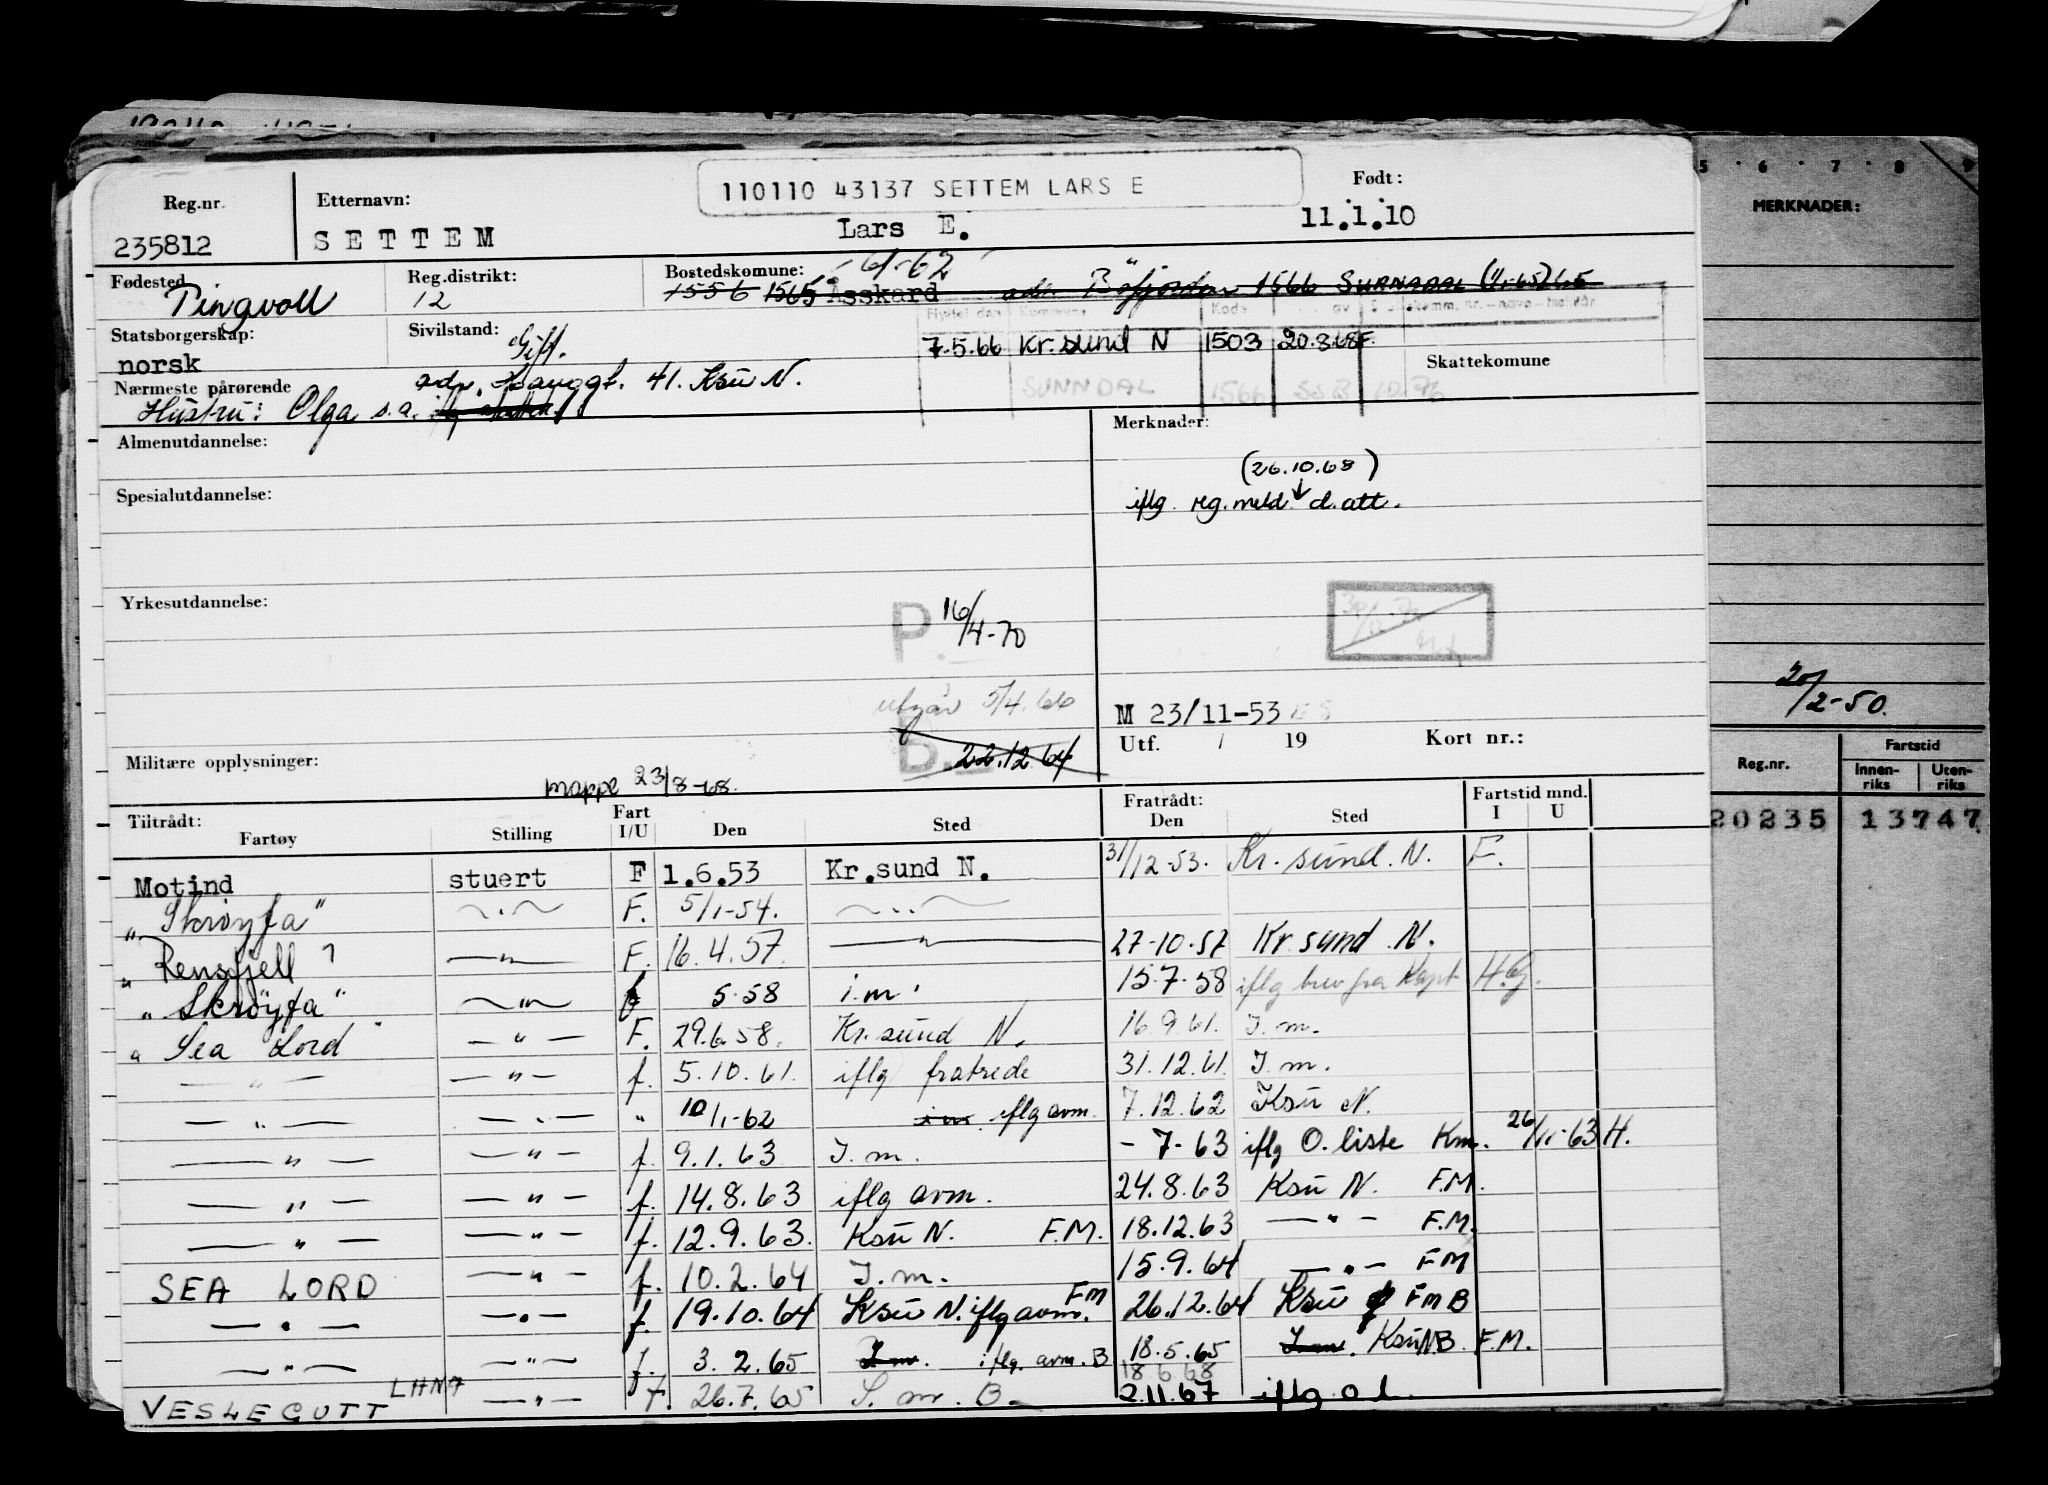 5 · 6 · 7 · 8 · 9
MERKNADER:
110110 43137 SETTEM LARS E
Reg.nr. Etternavn: Født:
235812 SETTEM Lars E. 11.1.10
Fødested Reg.distrikt: Bostedskomune: -61-62
Tingvoll 12 1556 1565 Åsskard adr. Böfjorden 1566 SURNADAL
Statsborgerskap: Sivilstand: Flyttet den Kommune Kode
norsk Gift. 7.5.66 Kr.sund N 1503 20.8.68F.
Skattekomune
Nærmeste pårørende adr. 41. Ksu N. SUNNDAL 1566
Hustru: Olga s.a.
Almenutdannelse: Merknader:
(26.10.68)
iflg. reg.meld. d.att.
Spesialutdannelse:
Yrkesutdannelse: P. 16/4-70
20/2-50.
utgår 5/4.66
M 23/11-53
Utf. / 19 Kort nr.:
B. 22.12.64
Militære opplysninger:
mappe 23/8-68.
Reg.nr. Fartstid
Innen-riks Uten-riks
20235 13747
Tiltrådt: Fart Fratrådt: Fartstid mnd.
Fartøy Stilling I/U Den Sted Den Sted I U
Motind stuert F 1.6.53 Kr.sund N. 31/12-53. Kr.sund.N. F.
" Skrøyfa" — " — F. 5/1-54. — " —
" Rensfjell ? — " — F. 16.4.57. — " — 27-10-57 Kr.sund N.
" Skrøyfa" — " — f 5.58 i.m. 15.7.58 iflg brev fra Kapt H.G.
" Sea Lord" — " — F. 29.6.58. Kr.sund N. 16.9.61. I.m.
— " — — " — f. 5.10.61. iflg fratrede 31.12.61. I.m.
— " — — " — " 10/1-62 i.m. iflg avm. 7.12.62 Ksu N.
— " — — " — f. 9.1.63 I.m. -7-63 iflg O.liste Km. 26/11-63 H.
— " — — " — f. 14.8.63 iflg avm. 24.8.63 Ksu N. F.M.
— " — — " — f. 12.9.63. Ksu N. F.M. 18.12.63 — " — F.M.
SEA LORD — " — f. 10.2.64 I.m. 15.9.64 — " — FM
— " — — " — f. 19.10.64 Ksu N. iflg avm. FM 26.12.64 Ksu FM B
— " — — " — f. 3.2.65 I.m. iflg. avm. B 18.5.65 I.m. Ksu N B. F.M.
18.6.68
VESLEGUTT LHNA — " — F. 26.7.65 I.m. B. 2.11.67 iflg. o.l.